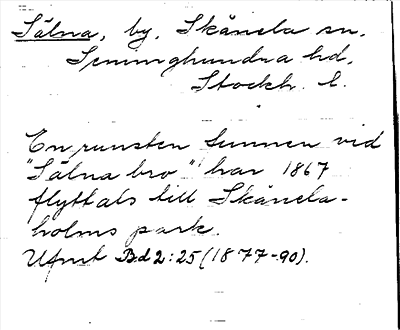 Sälna, by, Skånela sn,
Seminghundra hd,
Stockh. l.
En runsten funnen vid
"Sälna bro" har 1867
flyttats till Skånela-
holms park.
Ufmt Bd 2:25 (1877-90).